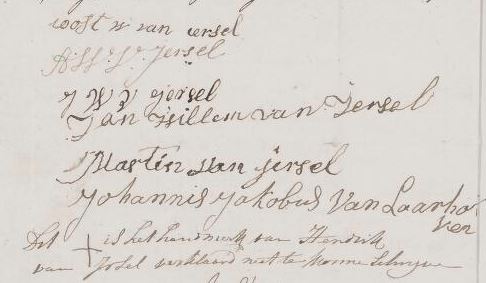 Joost v van iersel
A W V Jersel
J W V Jersel
Jan Willem van Iersel
Martin van iersel
Johannis Jakobus Van Laarho
ven
Dit + is het handmerk van Hendrik
van Jrsel verklaard niet te konnen schryven